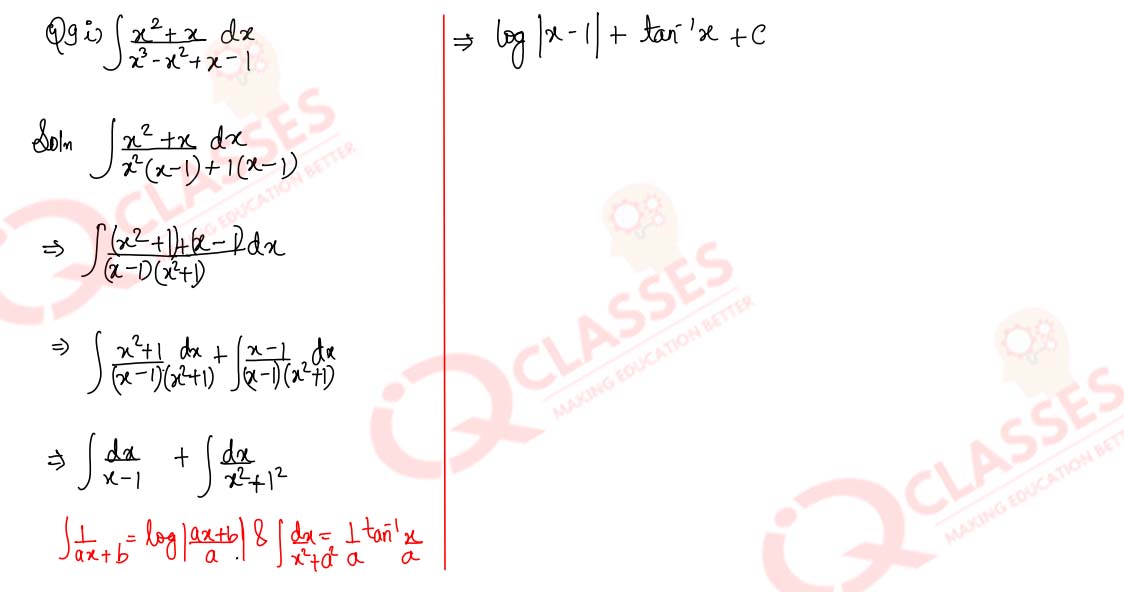 Q9 i) ∫ x² + x / x³ - x² + x - 1 dx
Soln ∫ x² + x / x²(x-1) + 1(x-1) dx
⇒ ∫ (x² + 1) + (x - 1) / (x-1)(x²+1) dx
⇒ ∫ x²+1 / (x-1)(x²+1) dx + ∫ x-1 / (x-1)(x²+1) dx
⇒ ∫ dx / x-1 + ∫ dx / x²+1²
∫ 1 / ax+b = log |ax+b / a| & ∫ dx / x²+a² = 1/a tan⁻¹ x/a
⇒ log |x - 1| + tan⁻¹ x + C
CLASSES
MAKING EDUCATION BETTER
CLASSES
MAKING EDUCATION BETTER
CLASSES
MAKING EDUCATION BETTER